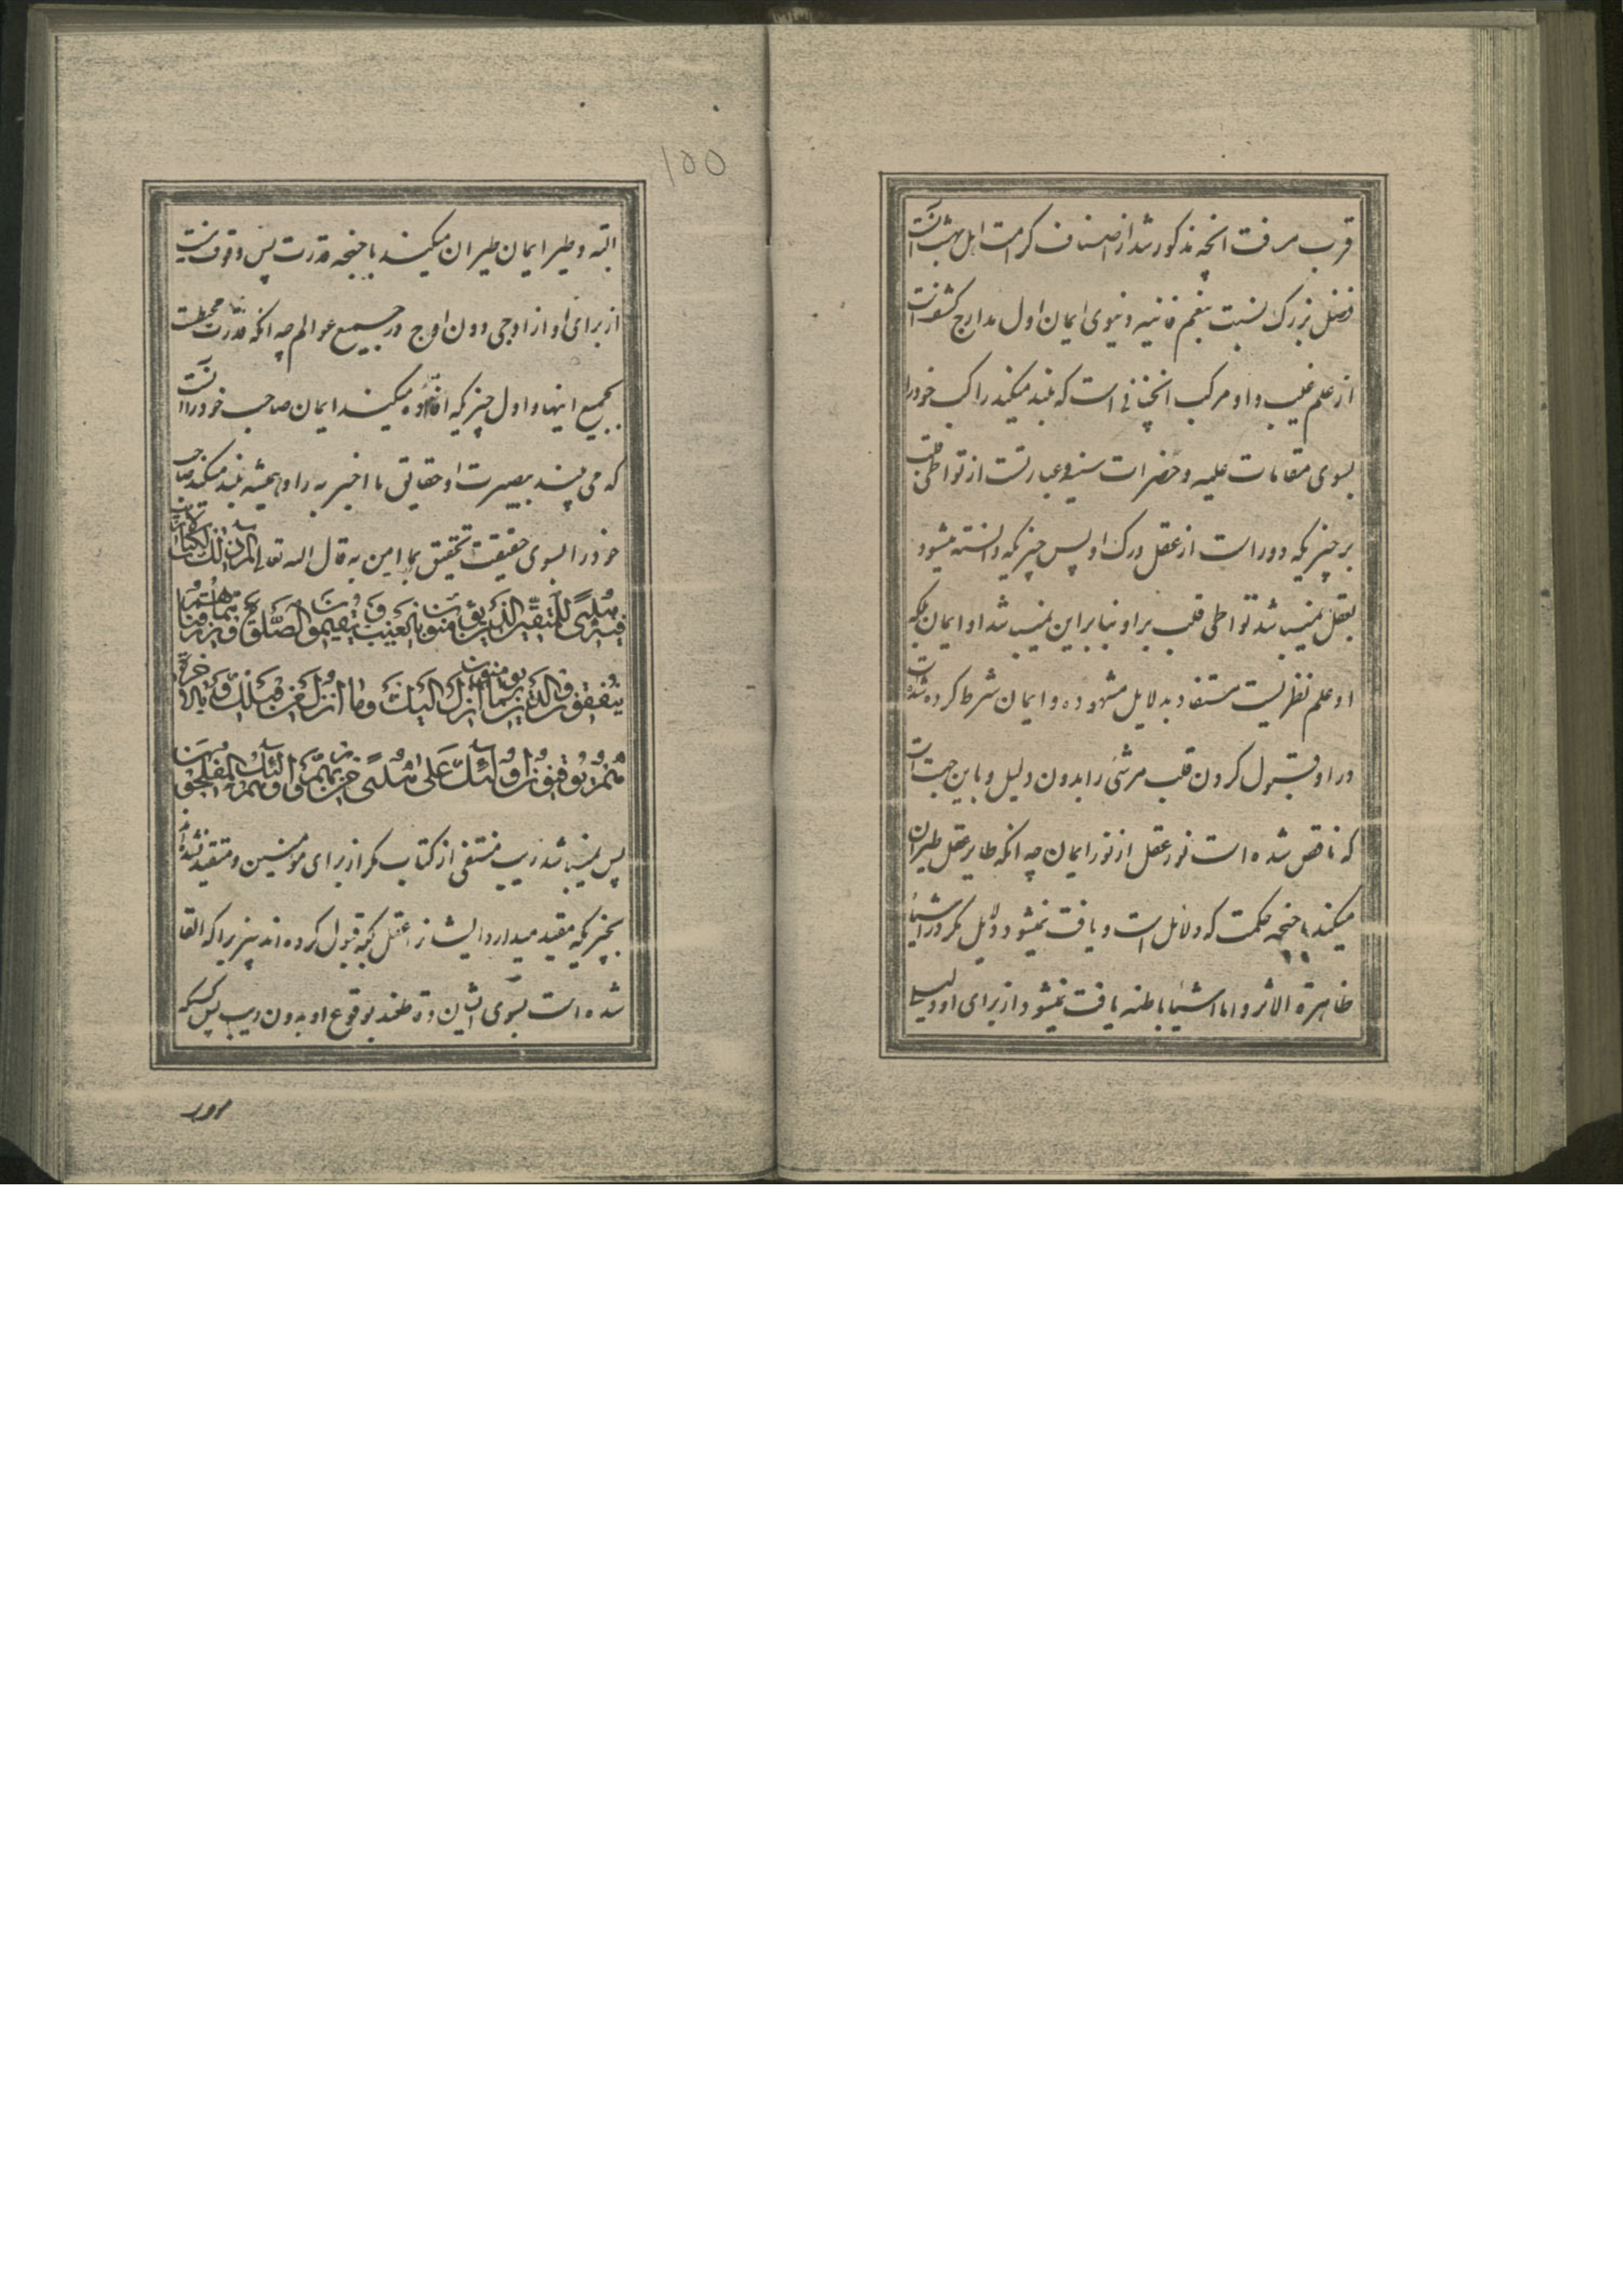 قرب معرفت انچه مذکور شد از اصناف کرامت اهل بهشت انست
فضل بزرک نسبت بنعم فانیه دنیوی ایمان اول مدارج کشوفست
از علم غیب و او مرکب انچنانی است که بلند میکند راکب خود را
بسوی مقامات علمیه و حضرات سنیه و عبارتست از تواطی قلب
بر چیزیکه دور است از عقل درک او پس چیزیکه دانسته میشود
بعقل نمیباشد تواطی قلب بر او بنابراین نمیباشد او ایمان بلکه
او علم نظریست مستفاد بدلایل مشهوده و ایمان شرط کرده شده است
در او قبول کردن قلب مر شئ را بدون دلیل و باین جهت است
که ناقص شده است نور عقل از نور ایمان چه انکه طایر عقل طیران
میکند باجنحه حکمت که دلائل است و یافت نمیشود دلایل مکر در اشیاء
ظاهرة الاثر و اما اشیاء باطنه یافت نمیشود از برای او دلیلی
۱۵۵
البته و طیر ایمان طیران میکند باجنحه قدرت پس وقوف نیست
از برای او از اوجی دون اوج در جمیع عوالم چه انکه قدرت محیطست
بجمیع اینها و اول چیزیکه افاده میکند ایمان صاحب خود را انست
که می بیند ببصیرت او حقایق ما اخبر به را و همیشه بلند میکند صاحب
خود را بسوی حقیقت تحقیق بما امن به قال الله تعالی الم ذلک الکتاب لاریب
فیه هدی للمتقین الذین یؤمنون بالغیب و یقیمون الصلوة و مما رزقناهم
ینفقون و الذین یؤمنون بما انزل الیک و ما انزل من قبلک و بالاخرة
هم یوقنون اولئک علی هدی من ربهم و اولئک هم المفلحون
پس نمیباشد ریب منتفی از کتاب مکر از برای مؤمنین و متقید نشده اند
بچیزیکه مقید میدارد ایشانرا عقل بلکه قبول کرده اند چیزیرا که القا
شده است بسوی ایشان و قاطعند بوقوع او بدون ریب پس کسیکه
مرور